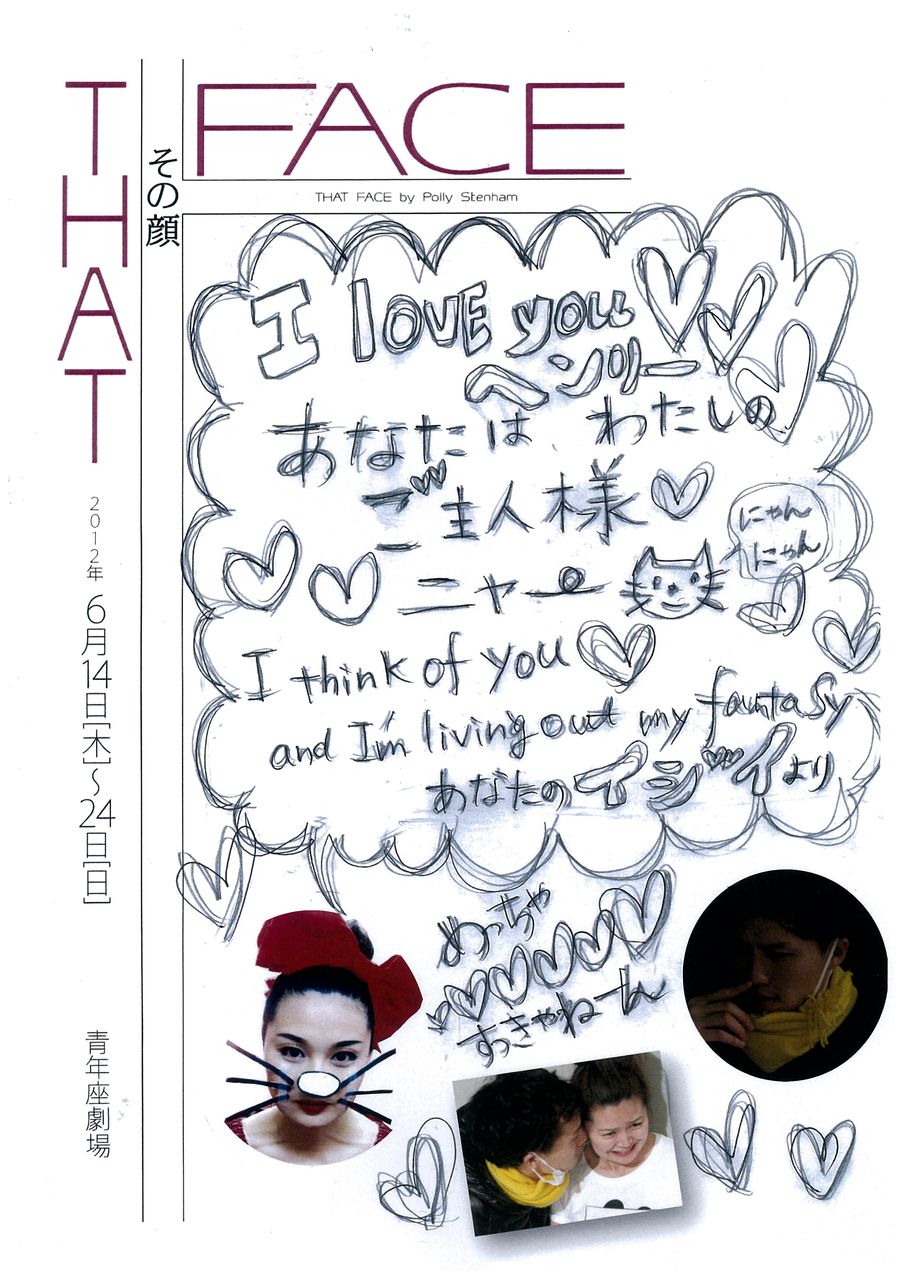 THAT
FACE
その顔
THAT FACE by Polly Stenham
2012年 6月14日[木]～24日[日]
青年座劇場
I love you
ヘンリー
あなたは、わたしの
ご主人様
ニャー
にゃん
にゃん
I think of you
and I'm living out my fantasy
あなたのイジイより
めっちゃ
すっきゃねーん